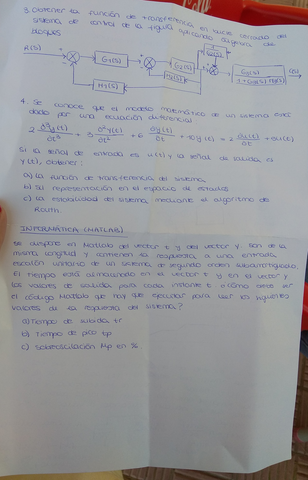 3. Obtener la función de transferencia en bucle cerrado del
sistema de control de la figura aplicando álgebra de
bloques
R(S)
G1(S)
G2(S)
H1(S)
G3(S)
C(S)
4. Se conoce que el modelo matemático de un sistema viene
dado por una ecuación diferencial
2 ∂³y(t)/∂t³ + 3 ∂²y(t)/∂t² + 6 ∂y(t)/∂t + 10y(t) = 2 ∂u(t)/∂t + 4u(t)
Si la señal de entrada es u(t) y la señal de salida es
y(t), obtener:
a) La función de transferencia del sistema
b) Su representación en el espacio de estados
c) La estabilidad del sistema mediante el algoritmo de
Routh.
INFORMÁTICA (MATLAB)
Se dispone en Matlab del vector t y del vector y. Son de la
misma longitud y contienen la respuesta a una entrada
escalón unitario de un sistema de segundo orden subamortiguado.
El tiempo está almacenado en el vector t y en el vector y
los valores de salida para cada instante t ¿Cómo
el código Matlab que hay que ejecutar para los siguientes
valores de la respuesta del sistema?
a) Tiempo de subida tr
b) Tiempo de pico tp
c) Sobreoscilación Mp en %